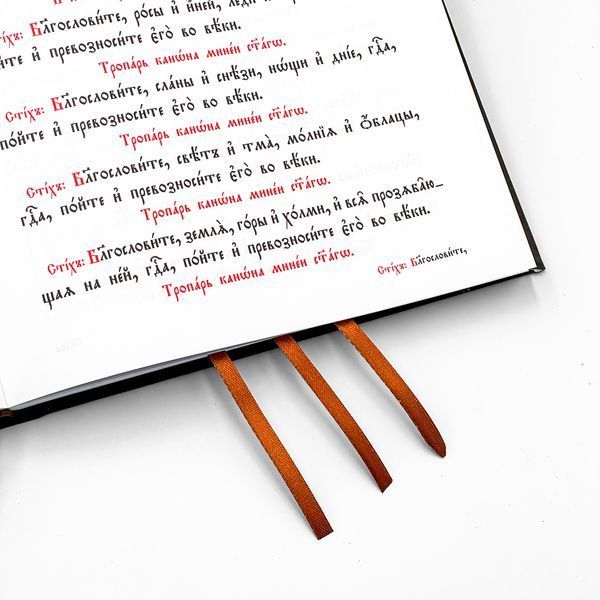 Стíхъ: Бл҃гослови́те, рѡ́сы и҆ и҆́ней, ледъ
по́йте и҆ превозноси́те є҆го̀ во вѣ́ки.
Тропа́рь канѡ́на мине́и ст҃а́гѡ.
Сті́хъ: Бл҃гослови́те, сла́ны и҆ снѣ́зи, нѡ́щи и҆ дні́е, гдⷭ҇а,
по́йте и҆ превозноси́те є҆го̀ во вѣ́ки.
Тропа́рь канѡ́на мине́и ст҃а́гѡ.
Сті́хъ: Бл҃гослови́те, свѣ́тъ и҆ тма̀, мѡ́лнїѧ и҆ ѻ҆́блацы,
гдⷭ҇а, по́йте и҆ превозноси́те є҆го̀ во вѣ́ки.
Тропа́рь канѡ́на мине́и ст҃а́гѡ.
Сті́хъ: Бл҃гослови́те, землѧ̀, го́ры и҆ хо́лми, и҆ всѧ̑ прозѧба̑ю-
щаѧ на не́й, гдⷭ҇а, по́йте и҆ превозноси́те є҆го̀ во вѣ́ки.
Тропа́рь канѡ́на мине́и ст҃а́гѡ.
Сті́хъ: Бл҃гослови́те,